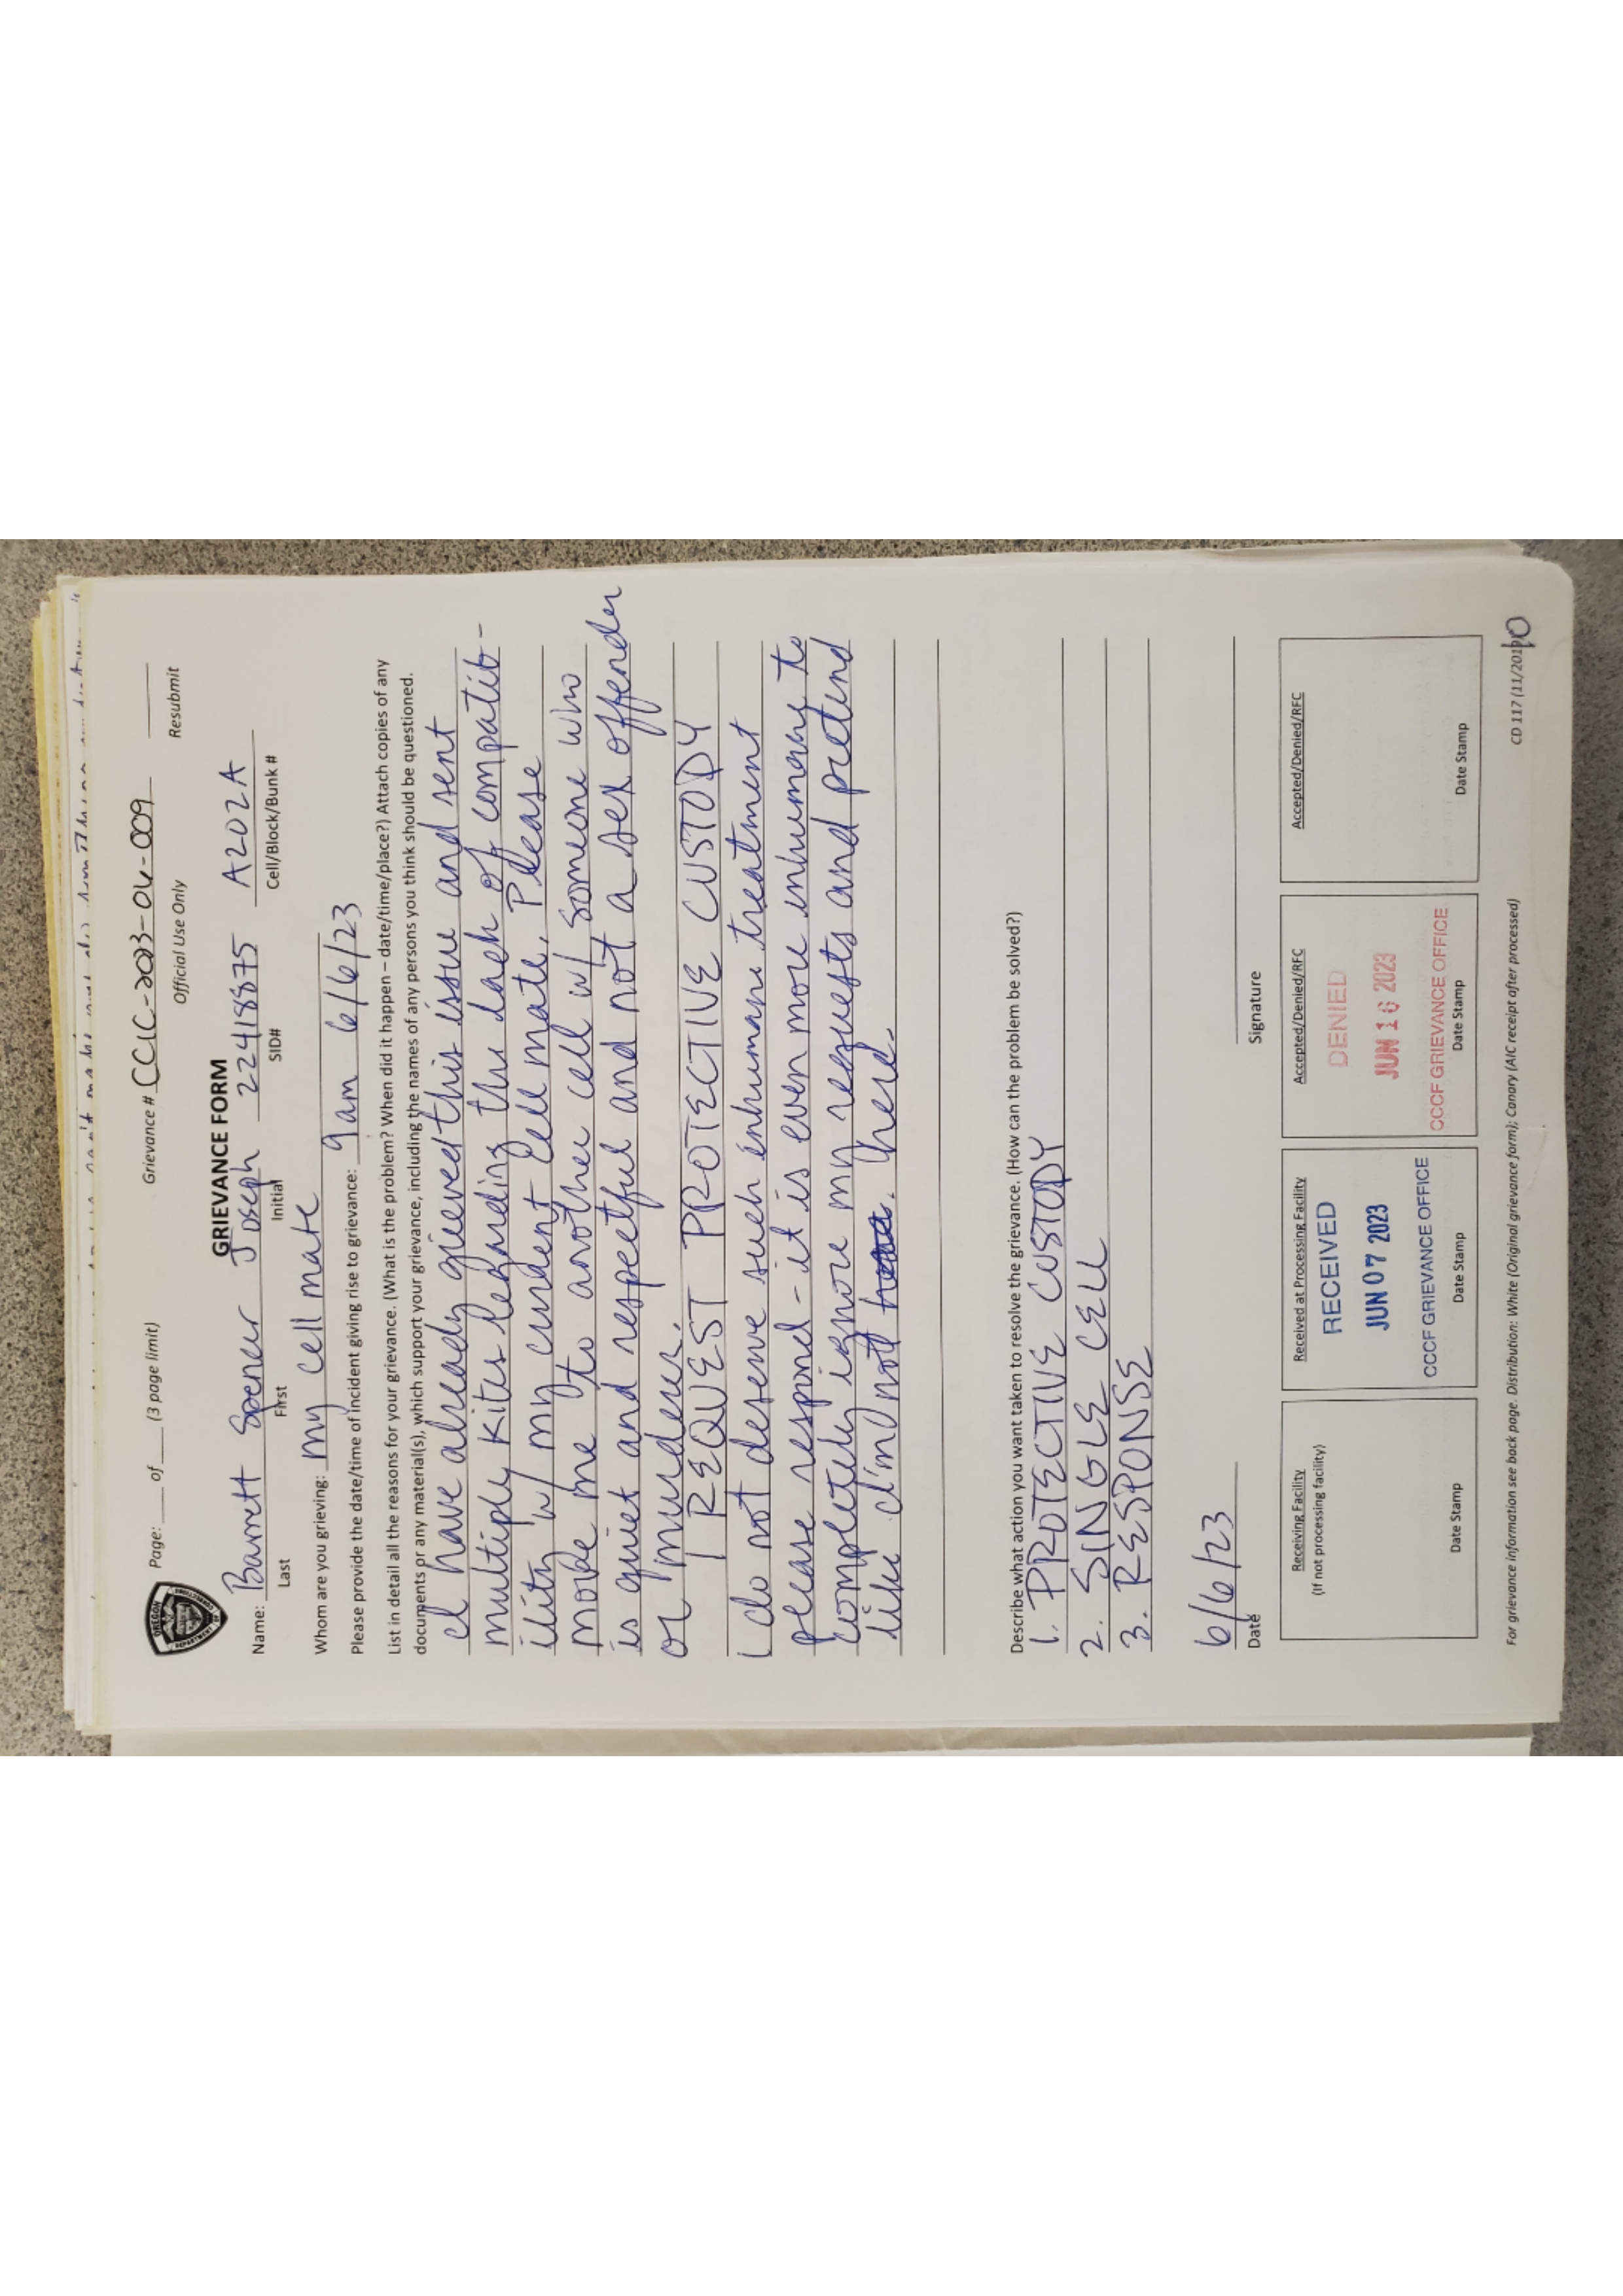 Page: ___ of ___ (3 page limit) Grievance # CCIC-2023-06-009
Official Use Only Resubmit
OREGON
DEPARTMENT OF
GRIEVANCE FORM
Name: Barrett Spencer Joseph 22418875 A202A
Last First Initial SID# Cell/Block/Bunk #
Whom are you grieving: my cell mate
Please provide the date/time of incident giving rise to grievance: 9am 6/6/23
List in detail all the reasons for your grievance. (What is the problem? When did it happen – date/time/place?) Attach copies of any
documents or any material(s), which support your grievance, including the names of any persons you think should be questioned.
I have already grieved this issue and sent
multiply kites regarding the lack of compatib-
ility w/ my current cell mate. Please
move me to another cell w/ someone who
is quiet and respectful and not a sex offender
or murderer.
I REQUEST PROTECTIVE CUSTODY
I do not deserve such inhumane treatment
please respond - it is even more inhumane to
completely ignore my requests and pretend
like I'm not here.
Describe what action you want taken to resolve the grievance. (How can the problem be solved?)
1. PROTECTIVE CUSTODY
2. SINGLE CELL
3. RESPONSE
6/6/23
Date Signature
Receiving Facility Received at Processing Facility Accepted/Denied/RFC Accepted/Denied/RFC
(If not processing facility)
RECEIVED DENIED
JUN 07 2023 JUN 16 2023
CCCF GRIEVANCE OFFICE CCCF GRIEVANCE OFFICE
Date Stamp Date Stamp Date Stamp Date Stamp
For grievance information see back page. Distribution: White (Original grievance form); Canary (AIC receipt after processed) CD 117 (11/2019)